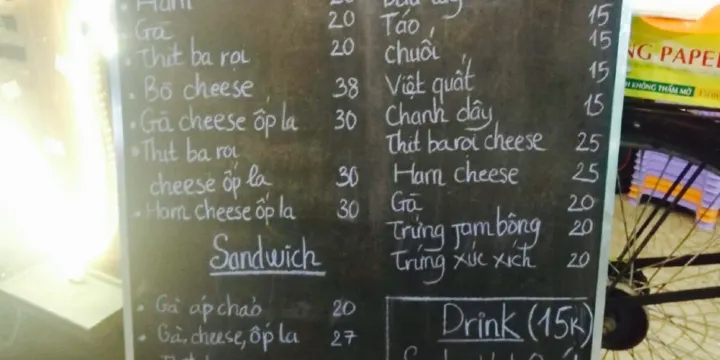 Ham 20
Gà 20
Thịt ba rọi 20
Bò cheese 38
Gà cheese ốp la 30
Thịt ba rọi
cheese ốp la 30
Ham cheese ốp la 30
Sandwich
Gà áp chảo 20
Gà, cheese, ốp la 27
Dâu tây 15
Táo 15
chuối 15
Việt quất
Chanh dây 15
Thịt ba rọi cheese 25
Ham cheese 25
Gà 20
Trứng Jambông 20
Trứng xúc xích 20
Drink (15k)
NG PAPE
KHÔNG THẤM MỠ